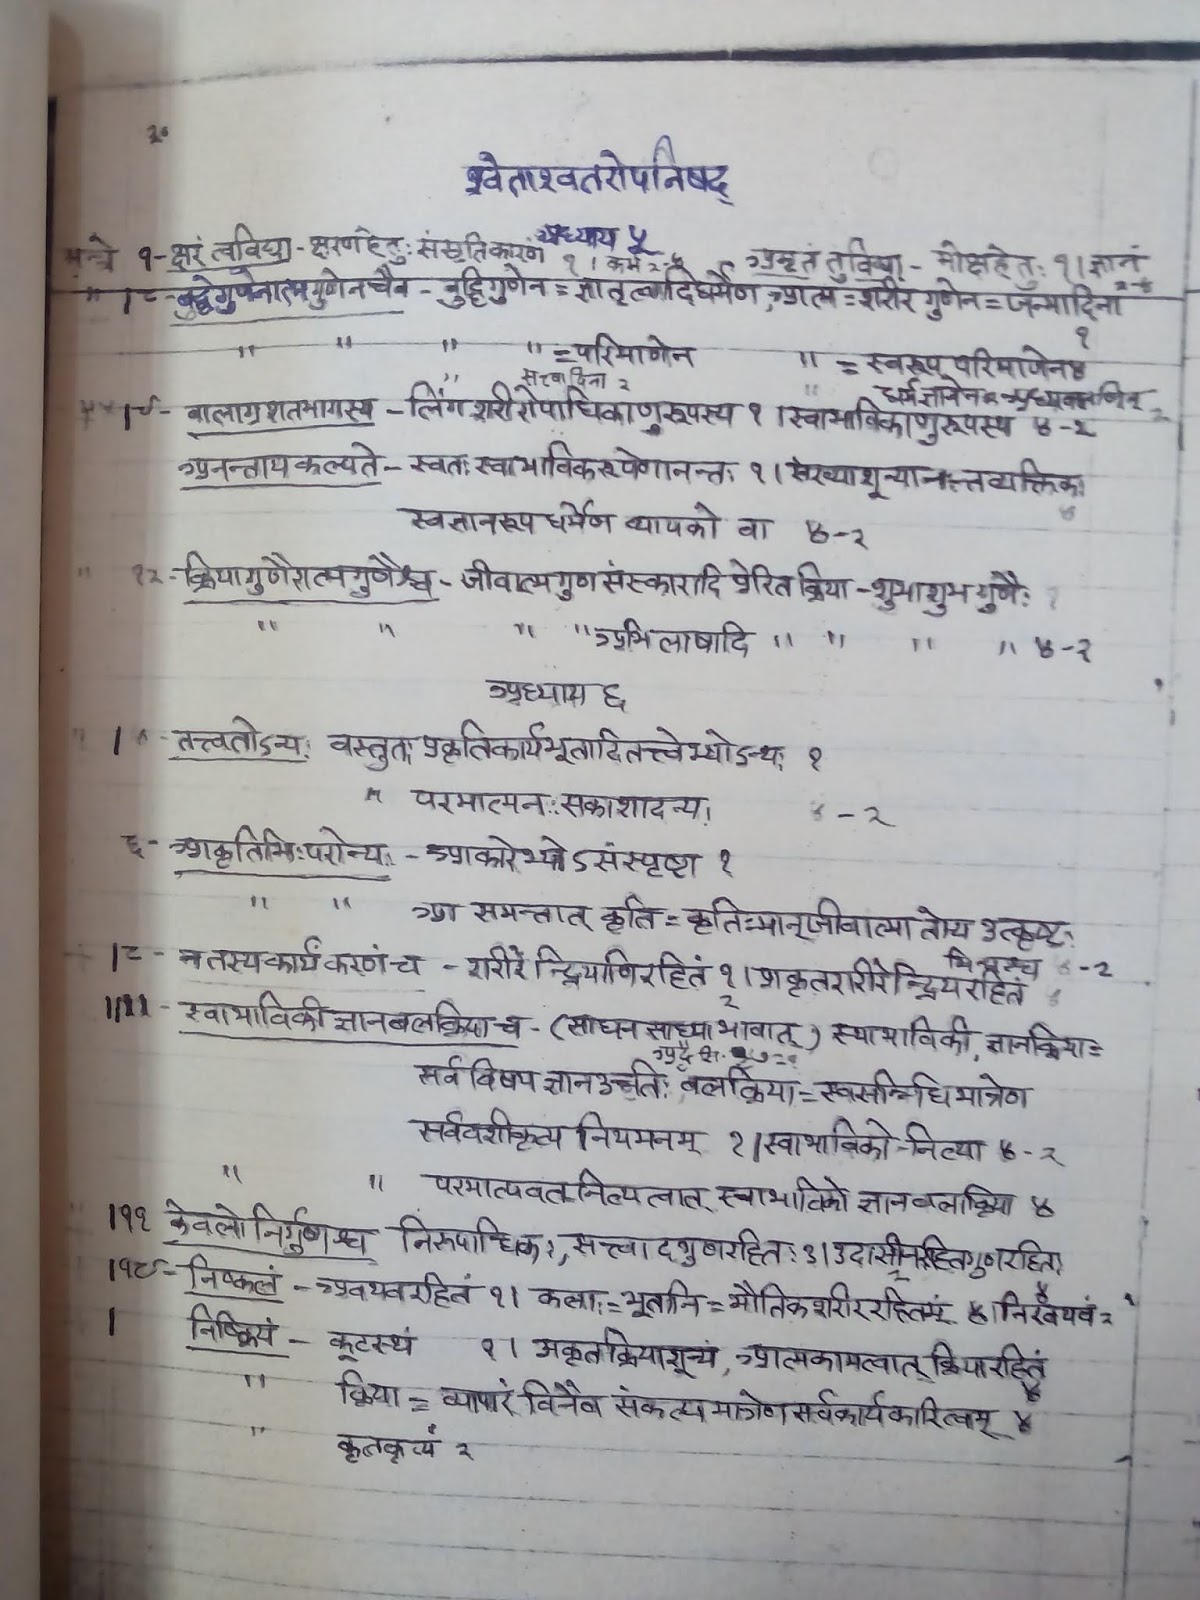 २०
श्वेताश्वतरोपनिषद्
अध्याय ५
मन्त्रे १ - क्षरं त्वविद्या - क्षरणहेतुः संसृतिकारणं १ । कर्म २-५ अमृतं तु विद्या - मोक्षहेतुः १ । ज्ञानं २-४
" ।८ - बुद्धेर्गुणेनात्मगुणेन चैव - बुद्धिगुणेन = ज्ञातृत्वादिधर्मेण, आत्म = शरीर गुणेन = जन्मादिना १
" " " " = परिमाणेन " = स्वरूप परिमाणेन ४
" सत्त्वादिना २ "
।९ - बालाग्रशतभागस्य - लिंग शरीरोपाधिकाणुरूपस्य १ । स्वाभाविकाणुरूपस्य ४-२
अनन्ताय कल्पते - स्वतः स्वाभाविकरूपेणानन्तः १ । संख्याशून्यानन्तव्यक्तिकः ४
स्वज्ञानरूप धर्मेण व्यापको वा ४-२
" १२ - क्रियागुणैरात्मगुणैश्च - जीवात्मगुण संस्कारादि प्रेरित क्रिया - शुभाशुभ गुणैः १
" " " " अभिलाषादि " " " " ४-२
अध्याय ६
तत्त्वतोऽन्यः वस्तुतः प्रकृतिकार्यभूतादितत्त्वेभ्योऽन्यः १
" परमात्मनः सकाशादन्यः ४-२
६ - आकृतिभिः परोन्यः - आकारेभ्योऽसंस्पृष्ट १
" " आ समन्तात् कृति = कृतिमान् जीवात्मा तोय उत्कृष्टः
भिन्नश्च ४-२
।८ - न तस्य कार्यं करणं च - शरीरेन्द्रियाणिरहितं १ । प्राकृतशरीरेन्द्रियरहितं ४
२
।।।।। - स्वाभाविकी ज्ञानबलक्रिया च - (साधन साध्याभावात्) स्वाभाविकी, ज्ञानक्रिया =
सर्व विषय ज्ञान उत्पत्तिः बलक्रिया = स्वसन्निधिमात्रेण
सर्ववशीकृत्य नियमनम् १ । स्वाभाविकी - नित्या ४-२
" " परमात्मवत् नित्यत्वात् स्वाभाविकी ज्ञानबलक्रिया ४
।११ केवलो निर्गुणश्च निरुपाधिकः, सत्त्वादगुणरहितः १ । उदासीनः रहितगुणरहितः ४
।१९ - निष्कलं - अवयवरहितं १ । कलाः = भूतानि = भौतिक शरीर रहितम् ४ । निरवयवं २
। निष्क्रियं - कूटस्थं १ । प्राकृतक्रियाशून्यं, आत्मकामत्वात् क्रियारहितं ४
" क्रिया = व्यापारं विनैव संकल्पमात्रेण सर्वकार्यकारित्वम् ४
" कृतकृत्यं २